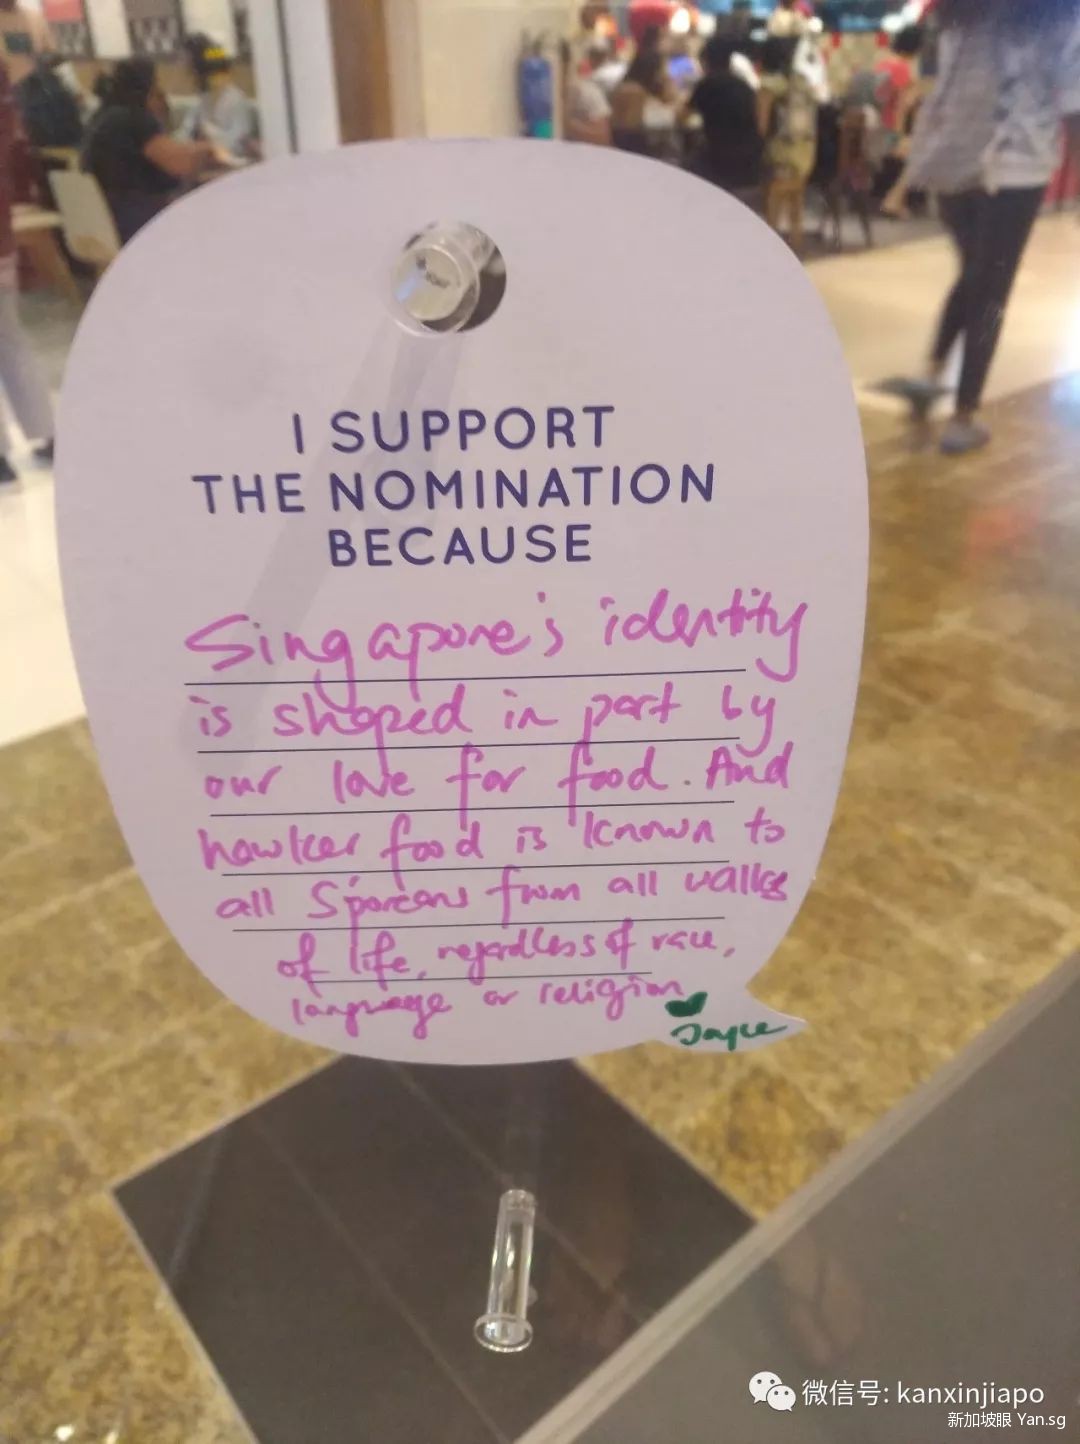 I SUPPORT
THE NOMINATION
BECAUSE
Singapore's identity
is shaped in part by
our love for food. And
hawker food is known to
all S'poreans from all walks
of life, regardless of race,
language or religion
Joyce
微信号: kanxinjiapo
新加坡眼 Yan.sg